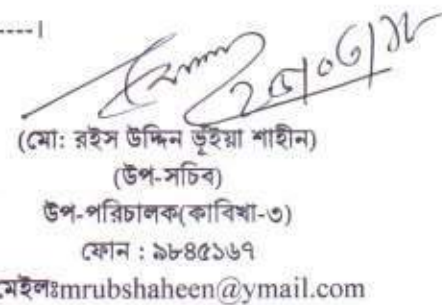 ----।
(মো: রইস উদ্দিন ভূঁইয়া শাহীন)
(উপ-সচিব)
উপ-পরিচালক(কাবিখা-৩)
ফোন : ৯৮৪৫১৬৭
মেইলঃmrubshaheen@ymail.com